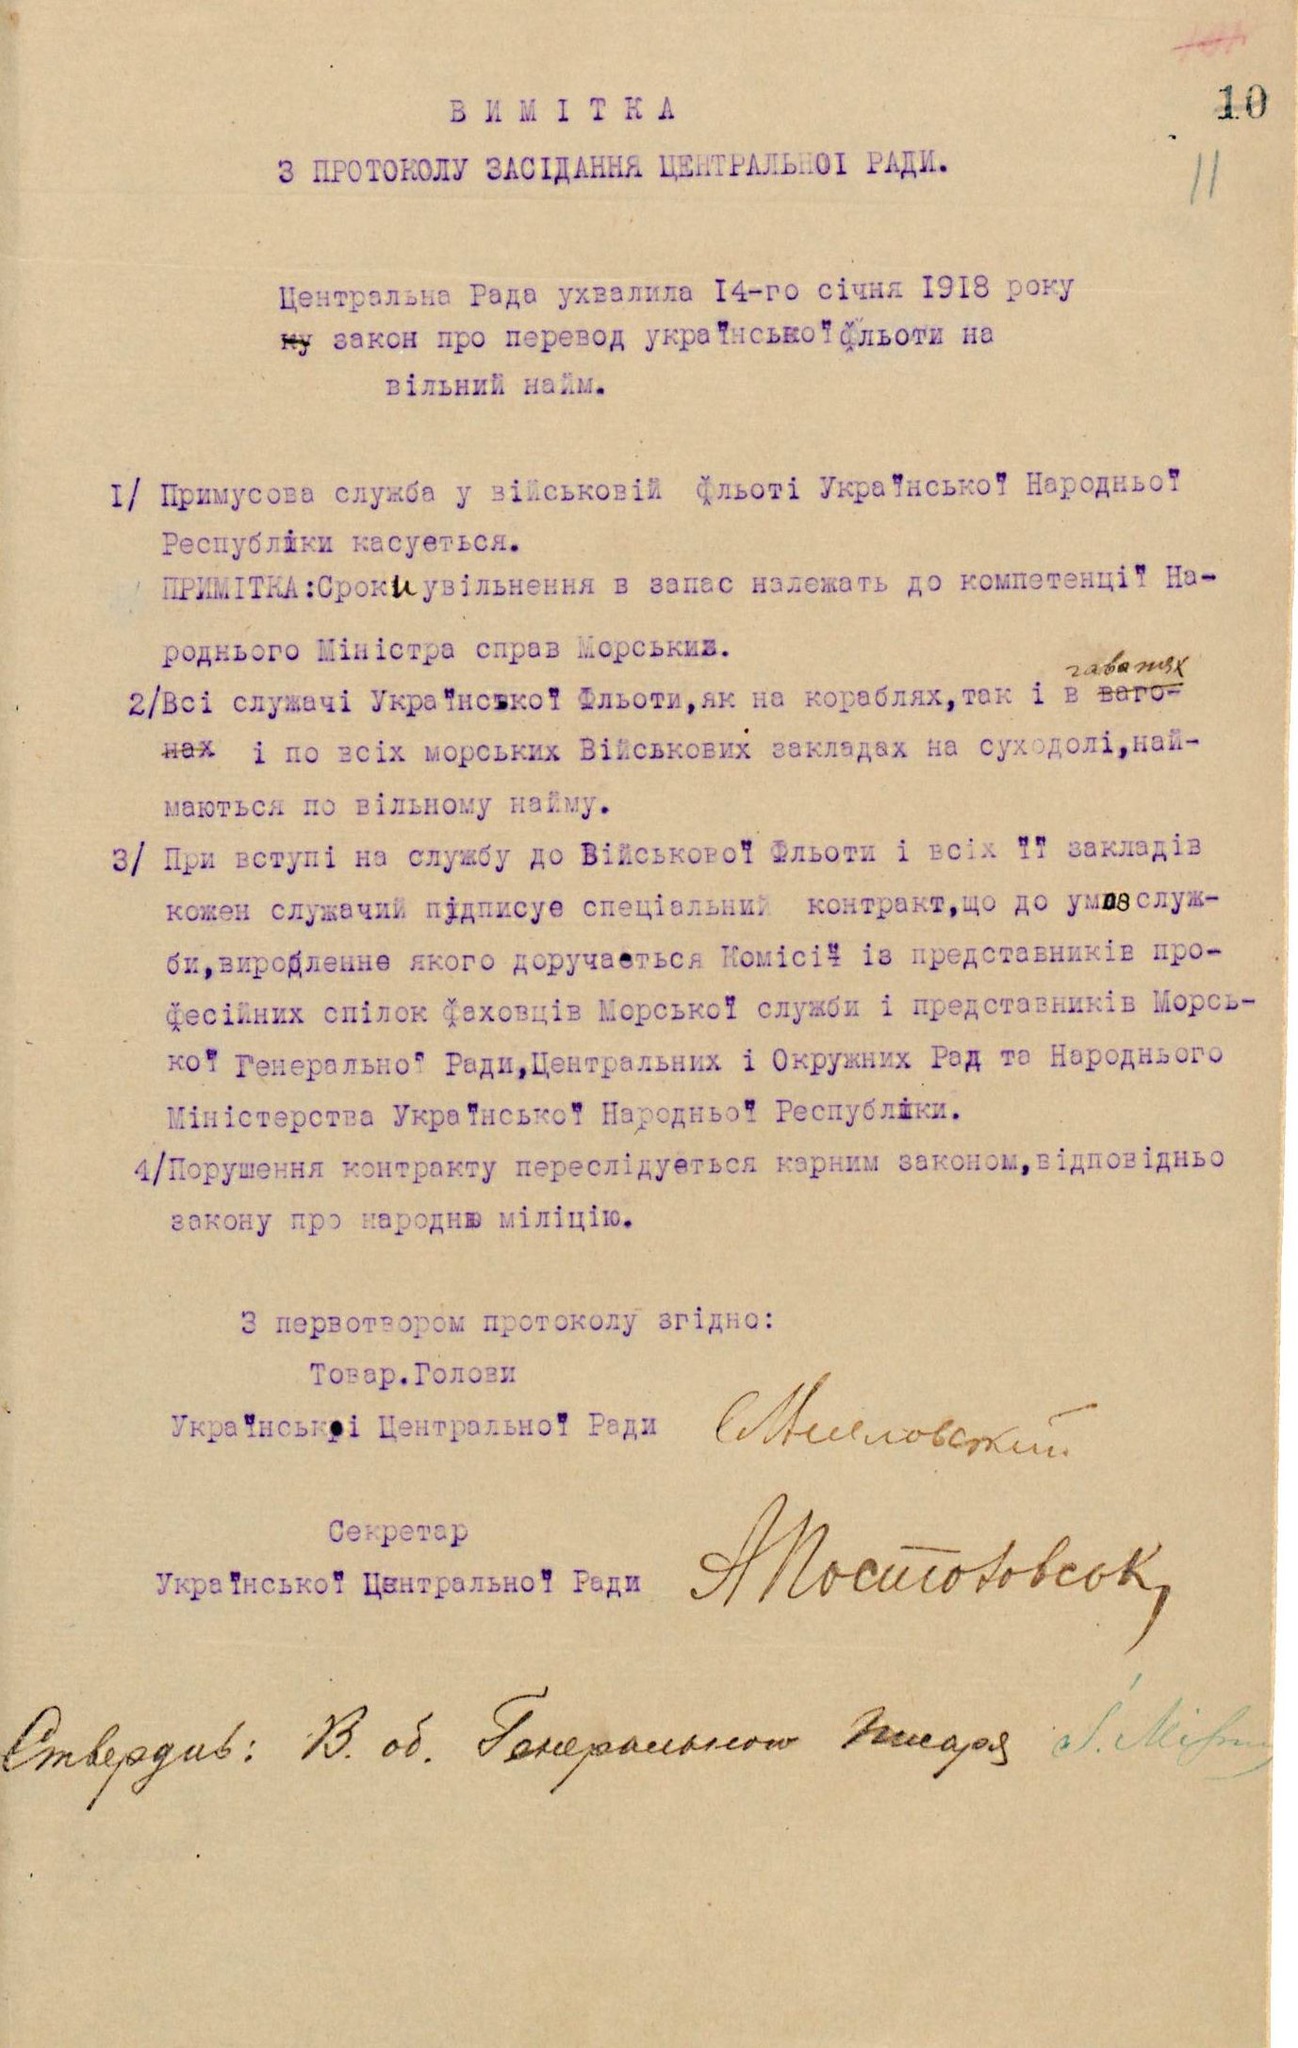 10
11
ВИМІТКА
З ПРОТОКОЛУ ЗАСІДАННЯ ЦЕНТРАЛЬНОІ РАДИ.
Центральна Рада ухвалила 14-го січня 1918 року
ку закон про перевод української фльоти на
вільний найм.
1/ Примусова служба у військовій фльоті Української Народньої
Республіки касується.
ПРИМІТКА:Сроки увільнення в запас належать до компетенції На-
роднього Міністра справ Морських.
гаванях
2/Всі служачі Української Фльоти,як на кораблях,так і в ваго-
нах і по всіх морських Військових закладах на суходолі,най-
маються по вільному найму.
3/ При вступі на службу до Військової Фльоти і всіх її закладів
кожен служачий підписує спеціальний контракт,що до умов служ-
би,вироблення якого доручається Комісії із представників про-
фесійних спілок фаховців Морської служби і представників Морсь-
кої Генеральної Ради,Центральних і Окружних Рад та Народнього
Міністерства Української Народньої Республіки.
4/Порушення контракту переслідується карним законом,відповідньо
закону про народню міліцію.
З первотвором протоколу згідно:
Товар.Голови
Українськоі Центральної Ради
Секретар
Української Центральної Ради
Ствердив: В. об. Генерального Писаря